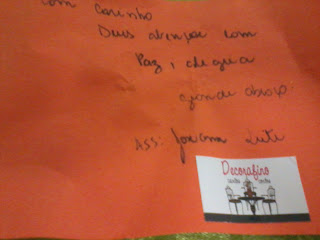 com carinho
Deus abençoe com
Paz, alegria
grande abraço.
ASS: Josiana Leite
Decorafino